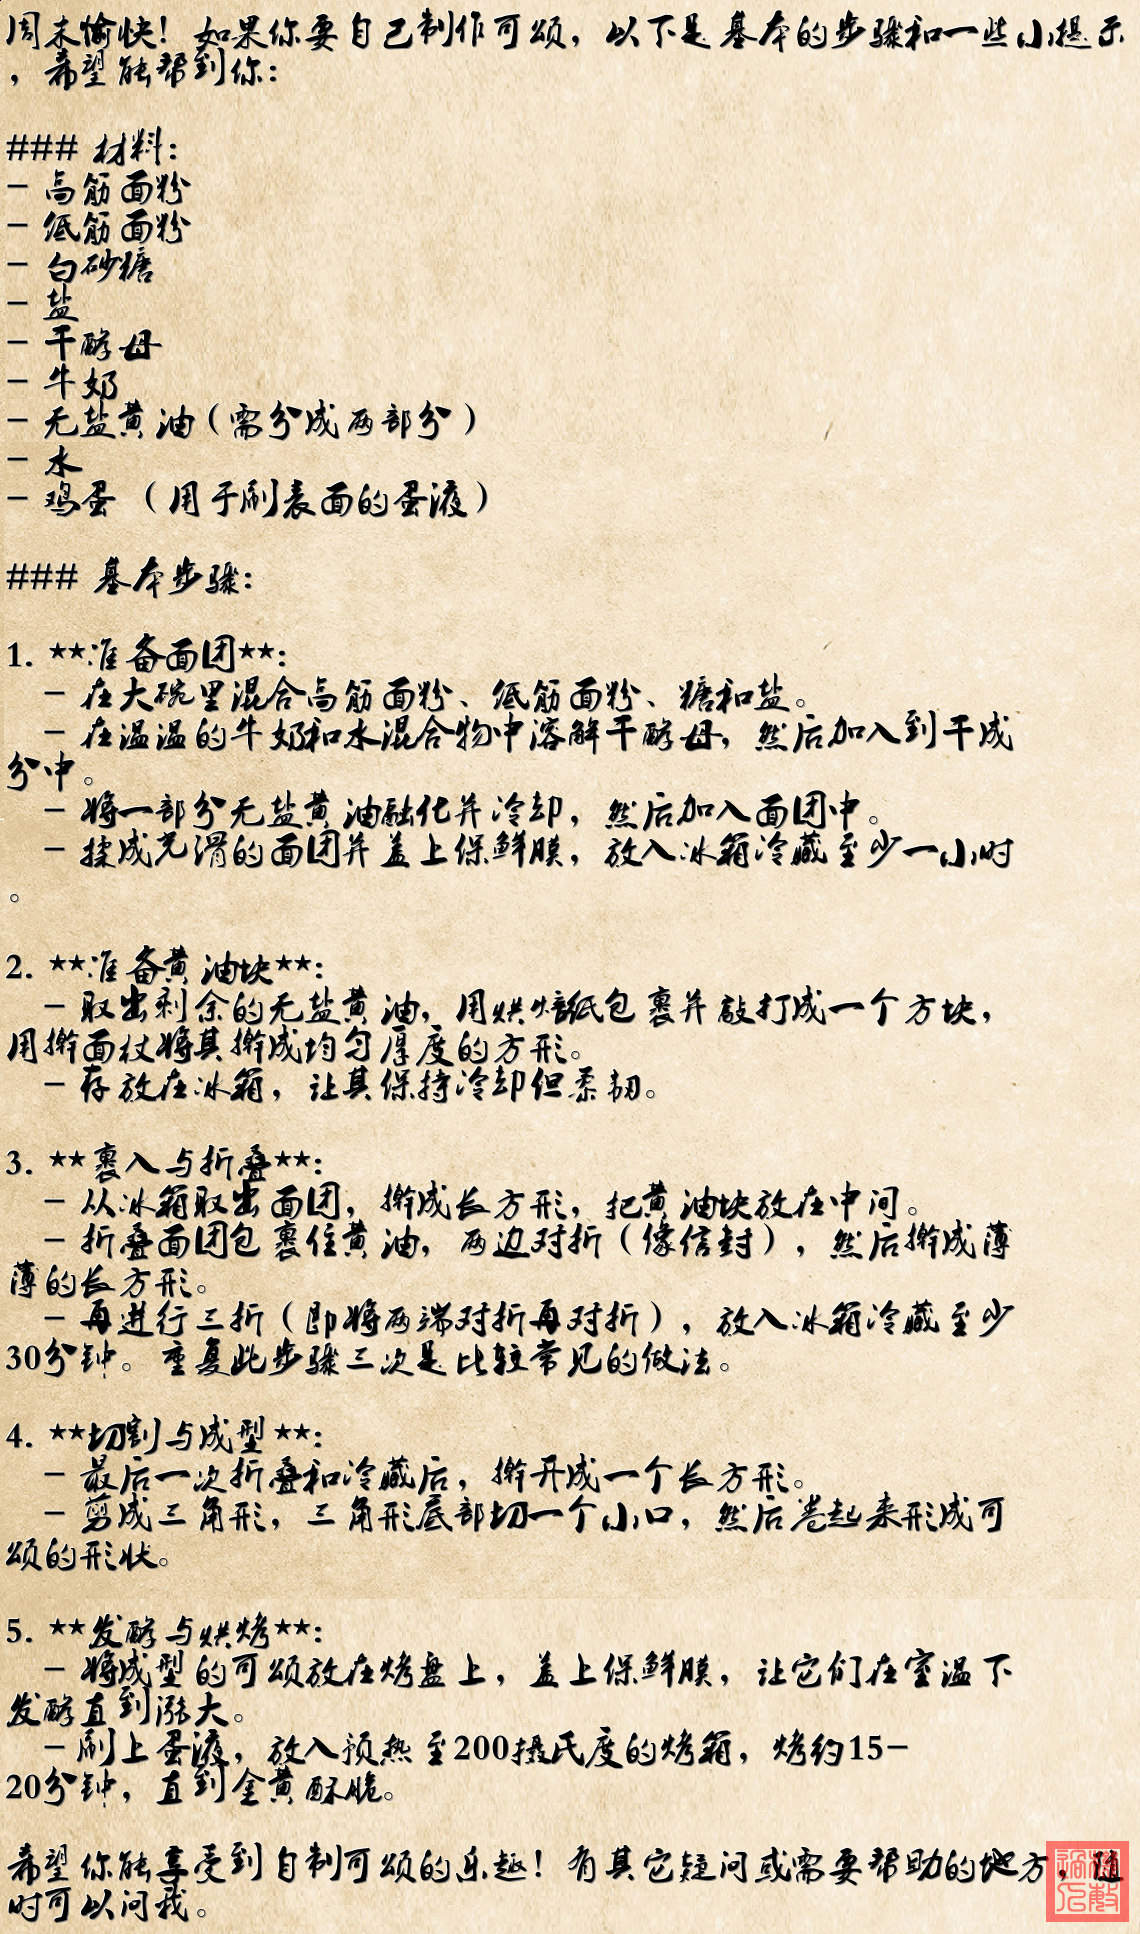 周末愉快！如果你要自己制作可颂，以下是基本的步骤和一些小提示
，希望能帮到你：
### 材料：
- 高筋面粉
- 低筋面粉
- 白砂糖
- 盐
- 干酵母
- 牛奶
- 无盐黄油（需分成两部分）
- 水
- 鸡蛋 （用于刷表面的蛋液）
### 基本步骤：
1. **准备面团**：
- 在大碗里混合高筋面粉、低筋面粉、糖和盐。
- 在温温的牛奶和水混合物中溶解干酵母，然后加入到干成
分中。
- 将一部分无盐黄油融化并冷却，然后加入面团中。
- 揉成光滑的面团并盖上保鲜膜，放入冰箱冷藏至少一小时
。
2. **准备黄油块**：
- 取出剩余的无盐黄油，用烘焙纸包裹并敲打成一个方块，
用擀面杖将其擀成均匀厚度的方形。
- 存放在冰箱，让其保持冷却但柔韧。
3. **裹入与折叠**：
- 从冰箱取出面团，擀成长方形，把黄油块放在中间。
- 折叠面团包裹住黄油，两边对折（像信封），然后擀成薄
薄的长方形。
- 再进行三折（即将两端对折再对折），放入冰箱冷藏至少
30分钟。重复此步骤三次是比较常见的做法。
4. **切割与成型**：
- 最后一次折叠和冷藏后，擀开成一个长方形。
- 剪成三角形，三角形底部切一个小口，然后卷起来形成可
颂的形状。
5. **发酵与烘烤**：
- 将成型的可颂放在烤盘上，盖上保鲜膜，让它们在室温下
发酵直到涨大。
- 刷上蛋液，放入预热至200摄氏度的烤箱，烤约15-
20分钟，直到金黄酥脆。
希望你能享受到自制可颂的乐趣！有其它疑问或需要帮助的地方，随
时可以问我。